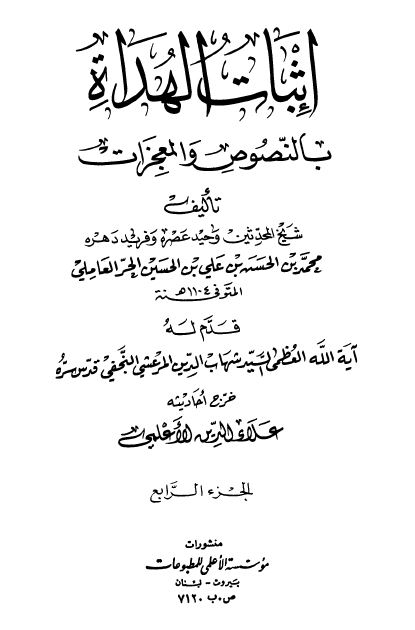 إثبات الهداة
بالنصوص والمعجزات
تأليف
شيخ المحدثين وحيد عصره وفريد دهره
محمد بن الحسن بن علي بن الحسين الحر العاملي
المتوفى سنة ١١٠٤هـ
قدم له
آية الله العظمى السيد شهاب الدين المرعشي النجفي قدس سره
خرج أحاديثه
علاء الدين الأعلمي
الجزء الرابع
منشورات
مؤسسة الأعلمي للمطبوعات
بيروت - لبنان
ص.ب ٧١٢٠